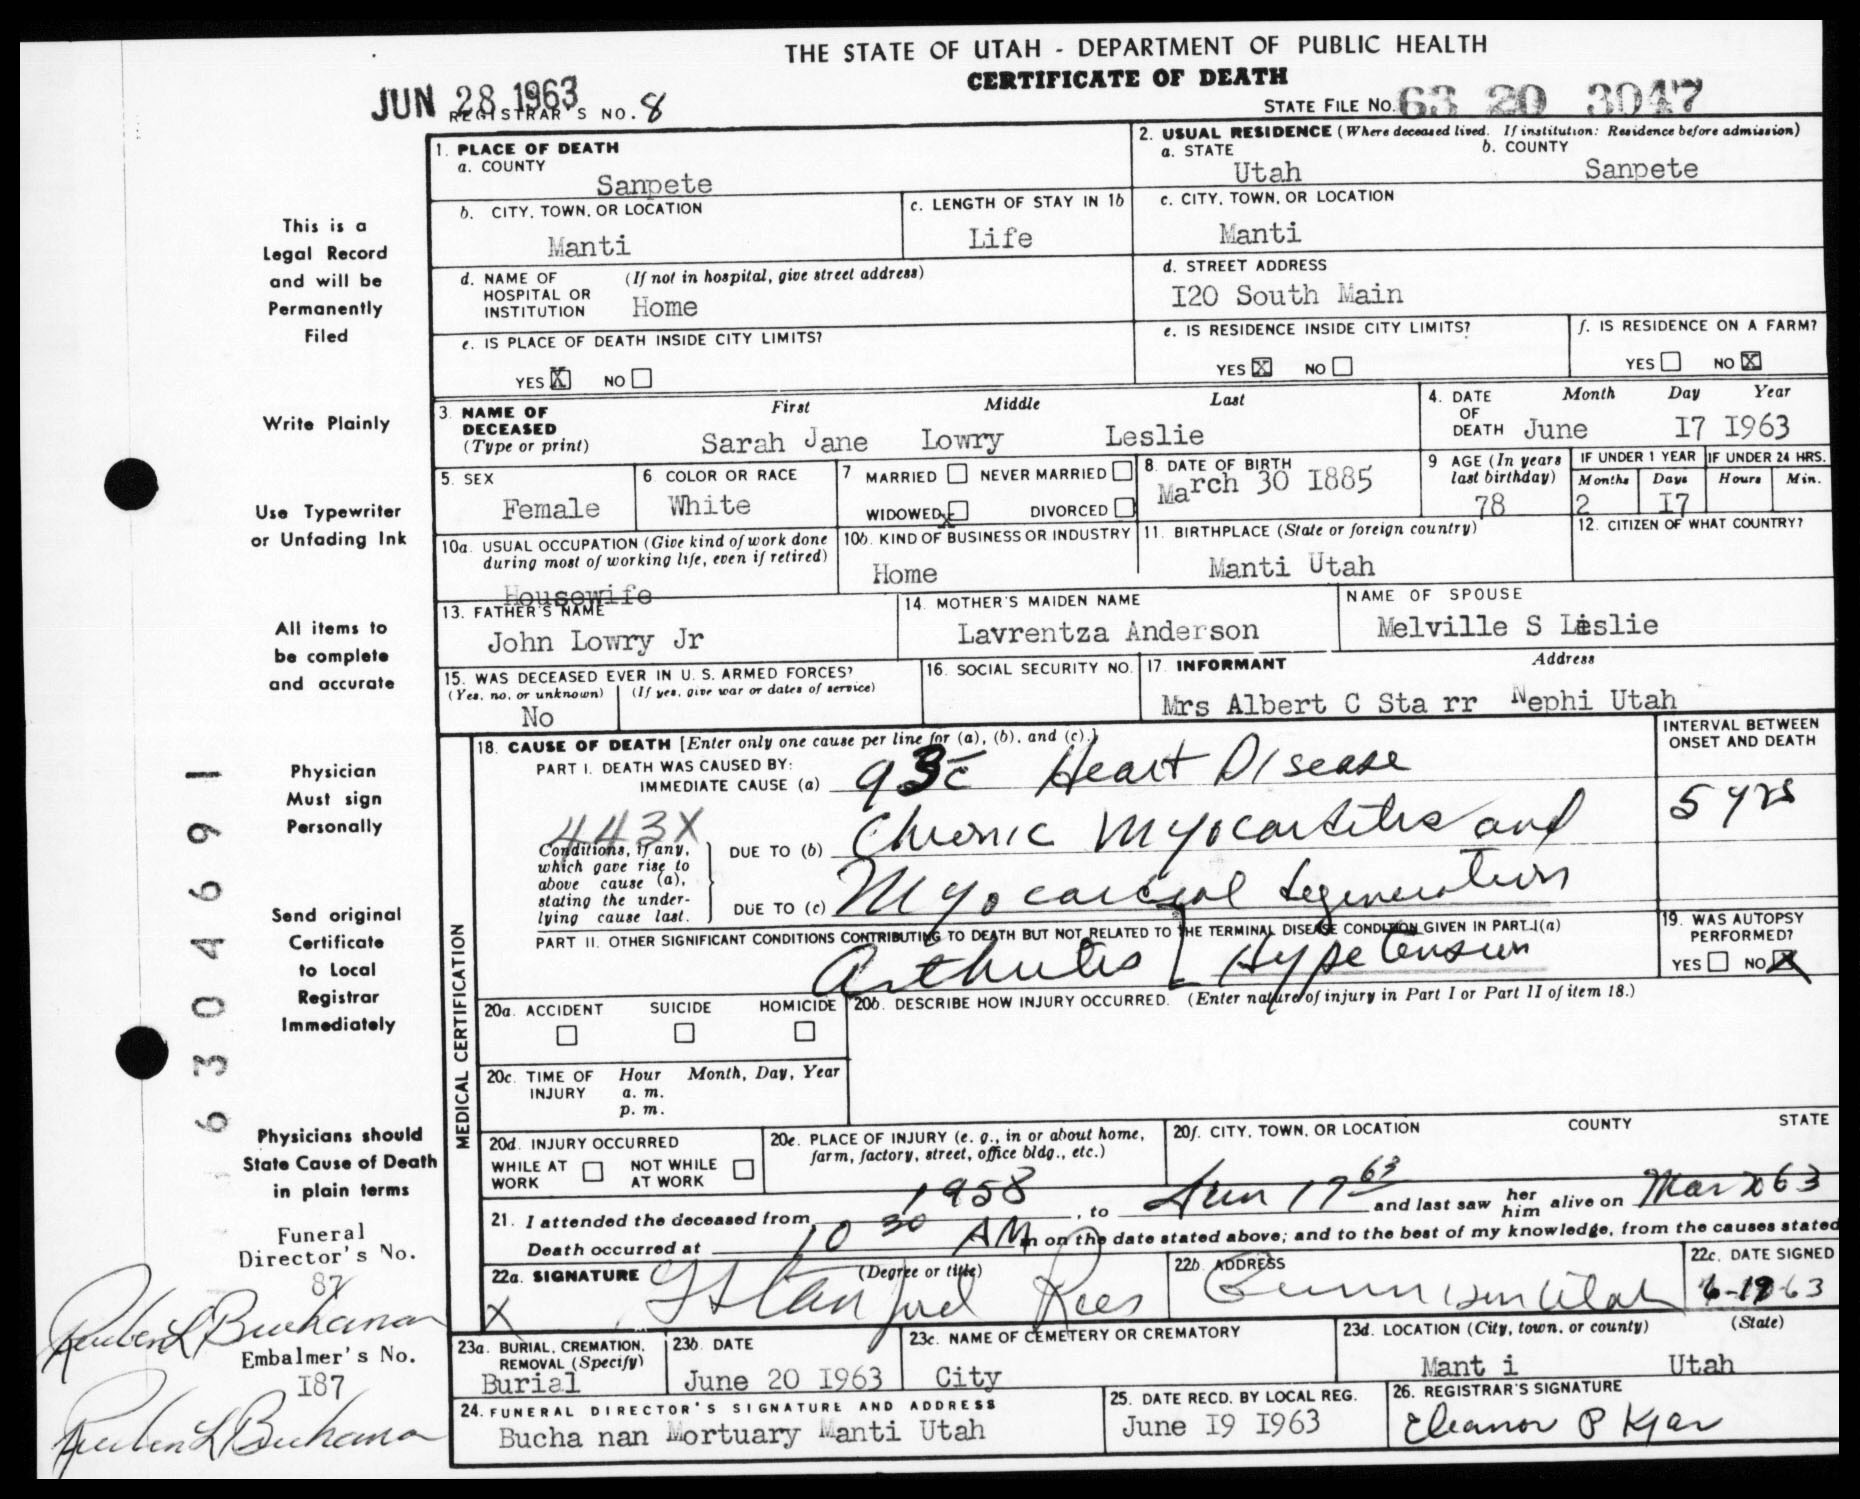 THE STATE OF UTAH - DEPARTMENT OF PUBLIC HEALTH
CERTIFICATE OF DEATH
JUN 28 1963
REGISTRAR'S NO. 8
STATE FILE NO. 63 20 3047
This is a
Legal Record
and will be
Permanently
Filed
Write Plainly
Use Typewriter
or Unfading Ink
All items to
be complete
and accurate
Physician
Must sign
Personally
Send original
Certificate
to Local
Registrar
Immediately
Physicians should
State Cause of Death
in plain terms
6304691
Funeral
Director's No.
87
Reuben L Buchanan
Embalmer's No.
I87
Reuben L Buchanan
1. PLACE OF DEATH
a. COUNTY
Sanpete
2. USUAL RESIDENCE (Where deceased lived. If institution: Residence before admission)
a. STATE b. COUNTY
Utah Sanpete
b. CITY, TOWN, OR LOCATION
Manti
c. LENGTH OF STAY IN 1b
Life
c. CITY, TOWN, OR LOCATION
Manti
d. NAME OF (If not in hospital, give street address)
HOSPITAL OR
INSTITUTION Home
d. STREET ADDRESS
I20 South Main
e. IS PLACE OF DEATH INSIDE CITY LIMITS?
YES X NO
e. IS RESIDENCE INSIDE CITY LIMITS?
YES X NO
f. IS RESIDENCE ON A FARM?
YES NO X
3. NAME OF First Middle Last
DECEASED
(Type or print) Sarah Jane Lowry Leslie
4. DATE Month Day Year
OF
DEATH June I7 I963
5. SEX
Female
6. COLOR OR RACE
White
7 MARRIED NEVER MARRIED
WIDOWED X DIVORCED
8. DATE OF BIRTH
March 30 I885
9 AGE (In years
last birthday)
78
IF UNDER 1 YEAR IF UNDER 24 HRS.
Months Days Hours Min.
2 I7
10a. USUAL OCCUPATION (Give kind of work done
during most of working life, even if retired)
Housewife
10b. KIND OF BUSINESS OR INDUSTRY
Home
11. BIRTHPLACE (State or foreign country)
Manti Utah
12. CITIZEN OF WHAT COUNTRY?
13. FATHER'S NAME
John Lowry Jr
14. MOTHER'S MAIDEN NAME
Lavrentza Anderson
NAME OF SPOUSE
Melville S Leslie
15. WAS DECEASED EVER IN U. S. ARMED FORCES?
(Yes, no, or unknown) (If yes, give war or dates of service)
No
16. SOCIAL SECURITY NO.
17. INFORMANT Address
Mrs Albert C Sta rr Nephi Utah
MEDICAL CERTIFICATION
18. CAUSE OF DEATH [Enter only one cause per line for (a), (b), and (c).]
PART I. DEATH WAS CAUSED BY:
IMMEDIATE CAUSE (a) 93c Heart Disease
INTERVAL BETWEEN
ONSET AND DEATH
5 yrs
443X
Conditions, if any,
which gave rise to
above cause (a),
stating the under-
lying cause last.
DUE TO (b) Chronic Myocarditis and
DUE TO (c) Myocardial degeneration
PART II. OTHER SIGNIFICANT CONDITIONS CONTRIBUTING TO DEATH BUT NOT RELATED TO THE TERMINAL DISEASE CONDITION GIVEN IN PART I(a)
Arthritis Hypetension
19. WAS AUTOPSY
PERFORMED?
YES NO X
20a. ACCIDENT SUICIDE HOMICIDE
20b. DESCRIBE HOW INJURY OCCURRED. (Enter nature of injury in Part I or Part II of item 18.)
20c. TIME OF Hour Month, Day, Year
INJURY a. m.
p. m.
20d. INJURY OCCURRED
WHILE AT NOT WHILE
WORK AT WORK
20e. PLACE OF INJURY (e. g., in or about home,
farm, factory, street, office bldg., etc.)
20f. CITY, TOWN, OR LOCATION COUNTY STATE
21. I attended the deceased from 1958, to Jun 17 63 and last saw her him alive on Mar 63
Death occurred at 10 30 AM m on the date stated above; and to the best of my knowledge, from the causes stated
22a. SIGNATURE (Degree or title)
X G Stanford Rees
22b. ADDRESS
Gunnison Utah
22c. DATE SIGNED
6-19-63
23a. BURIAL, CREMATION,
REMOVAL (Specify)
Burial
23b. DATE
June 20 I963
23c. NAME OF CEMETERY OR CREMATORY
City
23d. LOCATION (City, town, or county) (State)
Mant i Utah
24. FUNERAL DIRECTOR'S SIGNATURE AND ADDRESS
Bucha nan Mortuary Manti Utah
25. DATE RECD. BY LOCAL REG.
June I9 I963
26. REGISTRAR'S SIGNATURE
Eleanor P Kjar